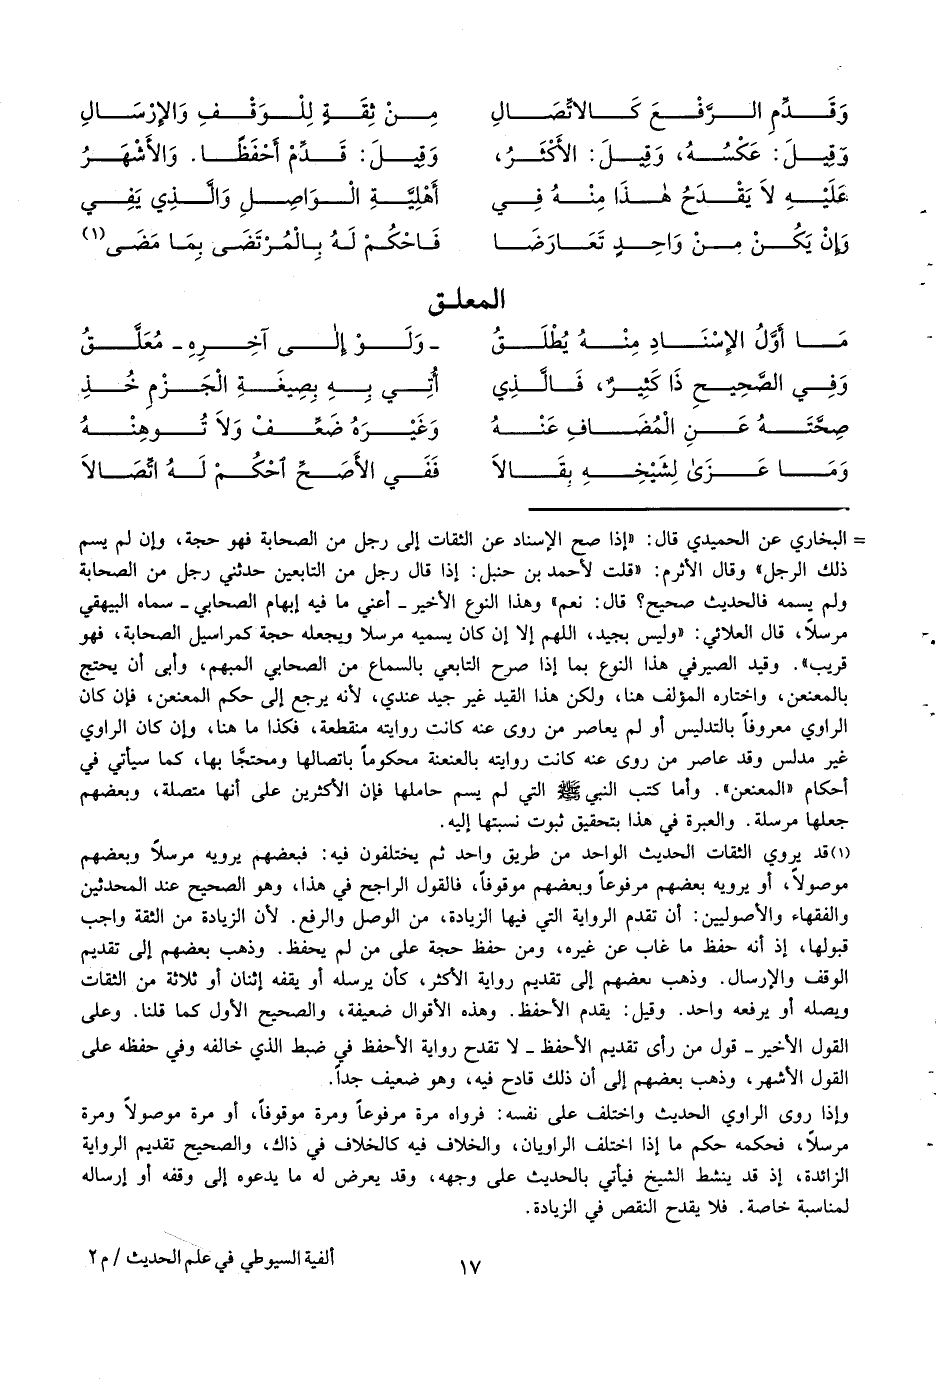 وَقَدِّمِ الرَّفْعَ كَالاتِّصَالِ مِنْ ثِقَةٍ لِلْوَقْفِ وَالإِرْسَالِ
وَقِيلَ: عَكْسُهُ، وَقِيلَ: الأَكْثَرُ، وَقِيلَ: قَدِّمْ أَحْفَظًا. وَالأَشْهَرُ
عَلَيْهِ لاَ يَقْدَحُ هٰذَا مِنْهُ فِي أَهْلِيَّةِ الْوَاصِلِ وَالَّذِي يَفِي
وَإِنْ يَكُنْ مِنْ وَاحِدٍ تَعَارَضَا فَاحْكُمْ لَهُ بِالْمُرْتَضَى بِمَا مَضَى (١)
المعلق
مَا أَوَّلُ الإِسْنَادِ مِنْهُ يُطْلَقُ - وَلَوْ إِلٰى آخِرِهِ - مُعَلَّقُ
وَفِي الصَّحِيحِ ذَا كَثِيرٌ، فَالَّذِي أُتِي بِهِ بِصِيغَةِ الْجَزْمِ خُذِ
صِحَّتَهُ عَنِ الْمُضَافِ عَنْهُ وَغَيْرَهُ ضَعِّفْ وَلاَ تُوهِنْهُ
وَمَا عَزَىٰ لِشَيْخِهِ بِقَالاَ فَفِي الأَصَحِّ احْكُمْ لَهُ اتِّصَالاَ
= البخاري عن الحميدي قال: «إذا صح الإسناد عن الثقات إلى رجل من الصحابة فهو حجة، وإن لم يسم
ذلك الرجل» وقال الأثرم: «قلت لأحمد بن حنبل: إذا قال رجل من التابعين حدثني رجل من الصحابة
ولم يسمه فالحديث صحيح؟ قال: نعم» وهذا النوع الأخير - أعني ما فيه إبهام الصحابي - سماه البيهقي
مرسلاً، قال العلائي: «وليس بجيد، اللهم إلا إن كان يسميه مرسلا ويجعله حجة كمراسيل الصحابة، فهو
قريب». وقيد الصيرفي هذا النوع بما إذا صرح التابعي بالسماع من الصحابي المبهم، وأبى أن يحتج
بالمعنعن، واختاره المؤلف هنا، ولكن هذا القيد غير جيد عندي، لأنه يرجع إلى حكم المعنعن، فإن كان
الراوي معروفاً بالتدليس أو لم يعاصر من روى عنه كانت روايته منقطعة، فكذا ما هنا، وإن كان الراوي
غير مدلس وقد عاصر من روى عنه كانت روايته بالعنعنة محكوماً باتصالها ومحتجًا بها، كما سيأتي في
أحكام «المعنعن». وأما كتب النبي ﷺ التي لم يسم حاملها فإن الأكثرين على أنها متصلة، وبعضهم
جعلها مرسلة. والعبرة في هذا بتحقيق ثبوت نسبتها إليه.
(١) قد يروي الثقات الحديث الواحد من طريق واحد ثم يختلفون فيه: فبعضهم يرويه مرسلاً وبعضهم
موصولاً، أو يرويه بعضهم مرفوعاً وبعضهم موقوفاً، فالقول الراجح في هذا، وهو الصحيح عند المحدثين
والفقهاء والأصوليين: أن تقدم الرواية التي فيها الزيادة، من الوصل والرفع. لأن الزيادة من الثقة واجب
قبولها، إذ أنه حفظ ما غاب عن غيره، ومن حفظ حجة على من لم يحفظ. وذهب بعضهم إلى تقديم
الوقف والإرسال. وذهب بعضهم إلى تقديم رواية الأكثر، كأن يرسله أو يقفه إثنان أو ثلاثة من الثقات
ويصله أو يرفعه واحد. وقيل: يقدم الأحفظ. وهذه الأقوال ضعيفة، والصحيح الأول كما قلنا. وعلى
القول الأخير - قول من رأى تقديم الأحفظ - لا تقدح رواية الأحفظ في ضبط الذي خالفه وفي حفظه على
القول الأشهر، وذهب بعضهم إلى أن ذلك قادح فيه، وهو ضعيف جداً.
وإذا روى الراوي الحديث واختلف على نفسه: فرواه مرة مرفوعاً ومرة موقوفاً، أو مرة موصولاً ومرة
مرسلاً، فحكمه حكم ما إذا اختلف الراويان، والخلاف فيه كالخلاف في ذاك، والصحيح تقديم الرواية
الزائدة، إذ قد ينشط الشيخ فيأتي بالحديث على وجهه، وقد يعرض له ما يدعوه إلى وقفه أو إرساله
لمناسبة خاصة. فلا يقدح النقص في الزيادة.
١٧ ألفية السيوطي في علم الحديث / م ٢